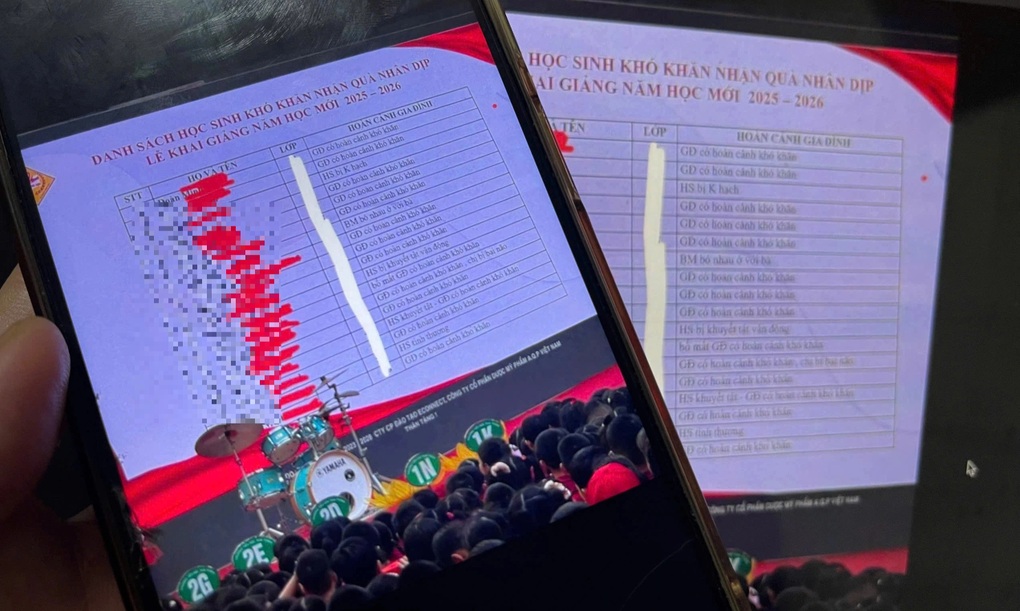 DANH SÁCH HỌC SINH KHÓ KHĂN NHẬN QUÀ NHÂN DỊP
LỄ KHAI GIẢNG NĂM HỌC MỚI 2025 – 2026
STT HỌ VÀ TÊN LỚP HOÀN CẢNH GIA ĐÌNH
GĐ có hoàn cảnh khó khăn
GĐ có hoàn cảnh khó khăn
HS bị K hạch
GĐ có hoàn cảnh khó khăn
GĐ có hoàn cảnh khó khăn
GĐ có hoàn cảnh khó khăn
BM bỏ nhau ở với bà
GĐ có hoàn cảnh khó khăn
GĐ có hoàn cảnh khó khăn
HS bị khuyết tật vận động
bố mất GĐ có hoàn cảnh khó khăn
GĐ có hoàn cảnh khó khăn, chị bị bại não
GĐ có hoàn cảnh khó khăn
HS khuyết tật - GĐ có hoàn cảnh khó khăn
GĐ có hoàn cảnh khó khăn
HS tình thương
GĐ có hoàn cảnh khó khăn
2026 CTY CP ĐÀO TẠO ECONNECT, CÔNG TY CỔ PHẦN DƯỢC MỸ PHẨM A.Q.P VIỆT NAM
THÂN TẶNG !
YAMAHA
1K
1N
2D
2E
2G
HỌC SINH KHÓ KHĂN NHẬN QUÀ NHÂN DỊP
AI GIẢNG NĂM HỌC MỚI 2025 – 2026
TÊN LỚP HOÀN CẢNH GIA ĐÌNH
GĐ có hoàn cảnh khó khăn
GĐ có hoàn cảnh khó khăn
HS bị K hạch
GĐ có hoàn cảnh khó khăn
GĐ có hoàn cảnh khó khăn
GĐ có hoàn cảnh khó khăn
BM bỏ nhau ở với bà
GĐ có hoàn cảnh khó khăn
GĐ có hoàn cảnh khó khăn
GĐ có hoàn cảnh khó khăn
HS bị khuyết tật vận động
bố mất GĐ có hoàn cảnh khó khăn
GĐ có hoàn cảnh khó khăn, chị bị bại não
GĐ có hoàn cảnh khó khăn
HS khuyết tật - GĐ có hoàn cảnh khó khăn
GĐ có hoàn cảnh khó khăn
HS tình thương
Đ có hoàn cảnh khó khăn
CÔNG TY CỔ PHẦN DƯỢC MỸ PHẨM A.Q.P VIỆT NAM